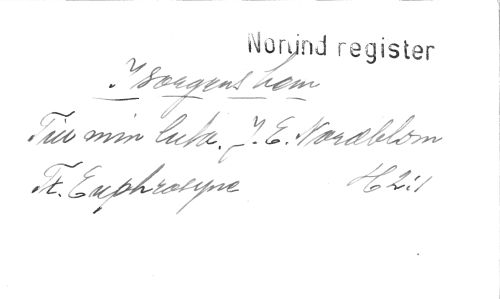 Norlind register
I sorgens hem
Till min luta. J. E. Nordblom
Ft. Euphrosyne H 2:1